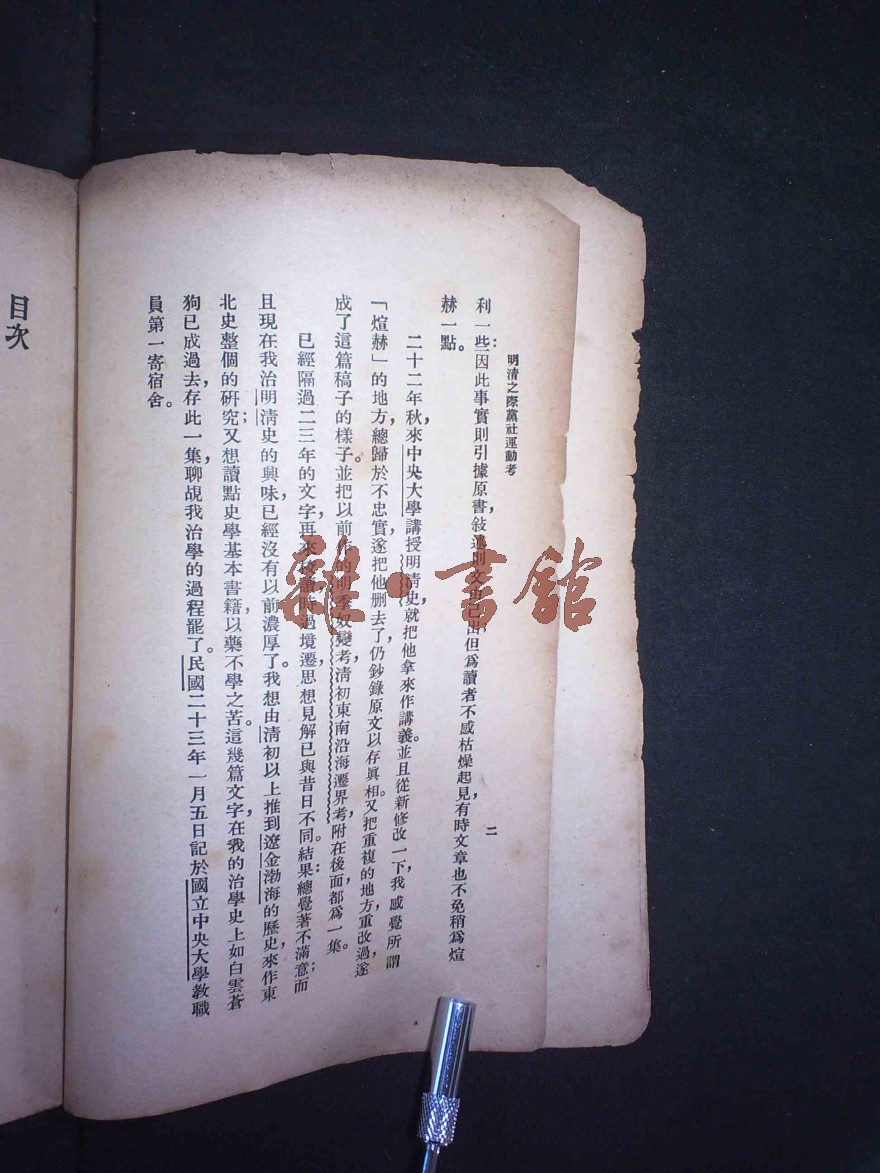 明清之際黨社運動考
二
利一些：因此事實則引據原書，敍述則文自己出但爲讀者不感枯燥起見，有時文章也不免稍爲煊
赫一點。
二十二年秋，來中央大學講授明清史，就把他拿來作講義。並且從新修改一下，我感覺所謂
「煊赫」的地方，總歸於不忠實，遂把他刪去了，仍鈔錄原文以存眞相。又把重複的地方重改過，遂
成了這篇稿子的樣子。並把以前作的明季奴變考，清初東南沿海遷界考，附在後面，都爲一集。
已經隔過二三年的文字，再來校看，時過境遷，思想見解已與昔日不同。結果：總覺著不滿意；而
且現在我治明清史的興味，已經沒有以前濃厚了。我想由清初以上推到遼金渤海的歷史，來作東
北史整個的研究；又想讀點史學基本書籍，以藥不學之苦。這幾篇文字，在我的治學史上，如白雲蒼
狗已成過去，存此一集，聊覘我治學的過程罷了。民國二十三年一月五日記於國立中央大學教職
員第一寄宿舍。
目次
雜·書館